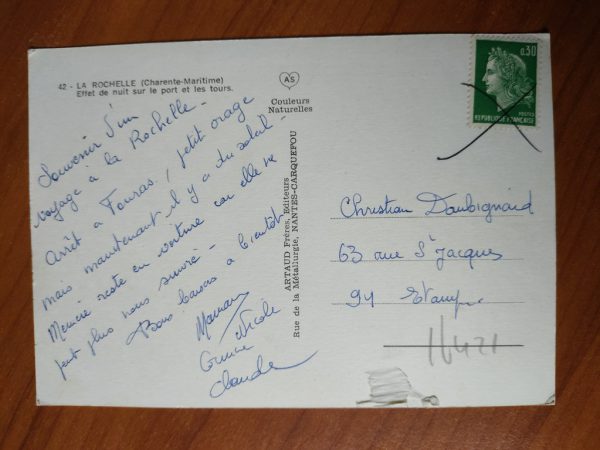 42 - LA ROCHELLE (Charente-Maritime)
Effet de nuit sur le port et les tours.
AS
Couleurs
Naturelles
Souvenir d'un
voyage à la Rochelle -
Arrêt à Fouras, petit orage
mais maintenant il y a du soleil -
Mémère reste en voiture car elle ne
peut plus nous suivre -
Bons baisers à bientôt
Maman
Nicole
Claude
ARTAUD Frères, Editeurs
Rue de la Métallurgie, NANTES-CARQUEFOU
0,30
POSTES
REPUBLIQUE FRANÇAISE
Christian Daubignard
63 rue St Jacques
91 Etampes